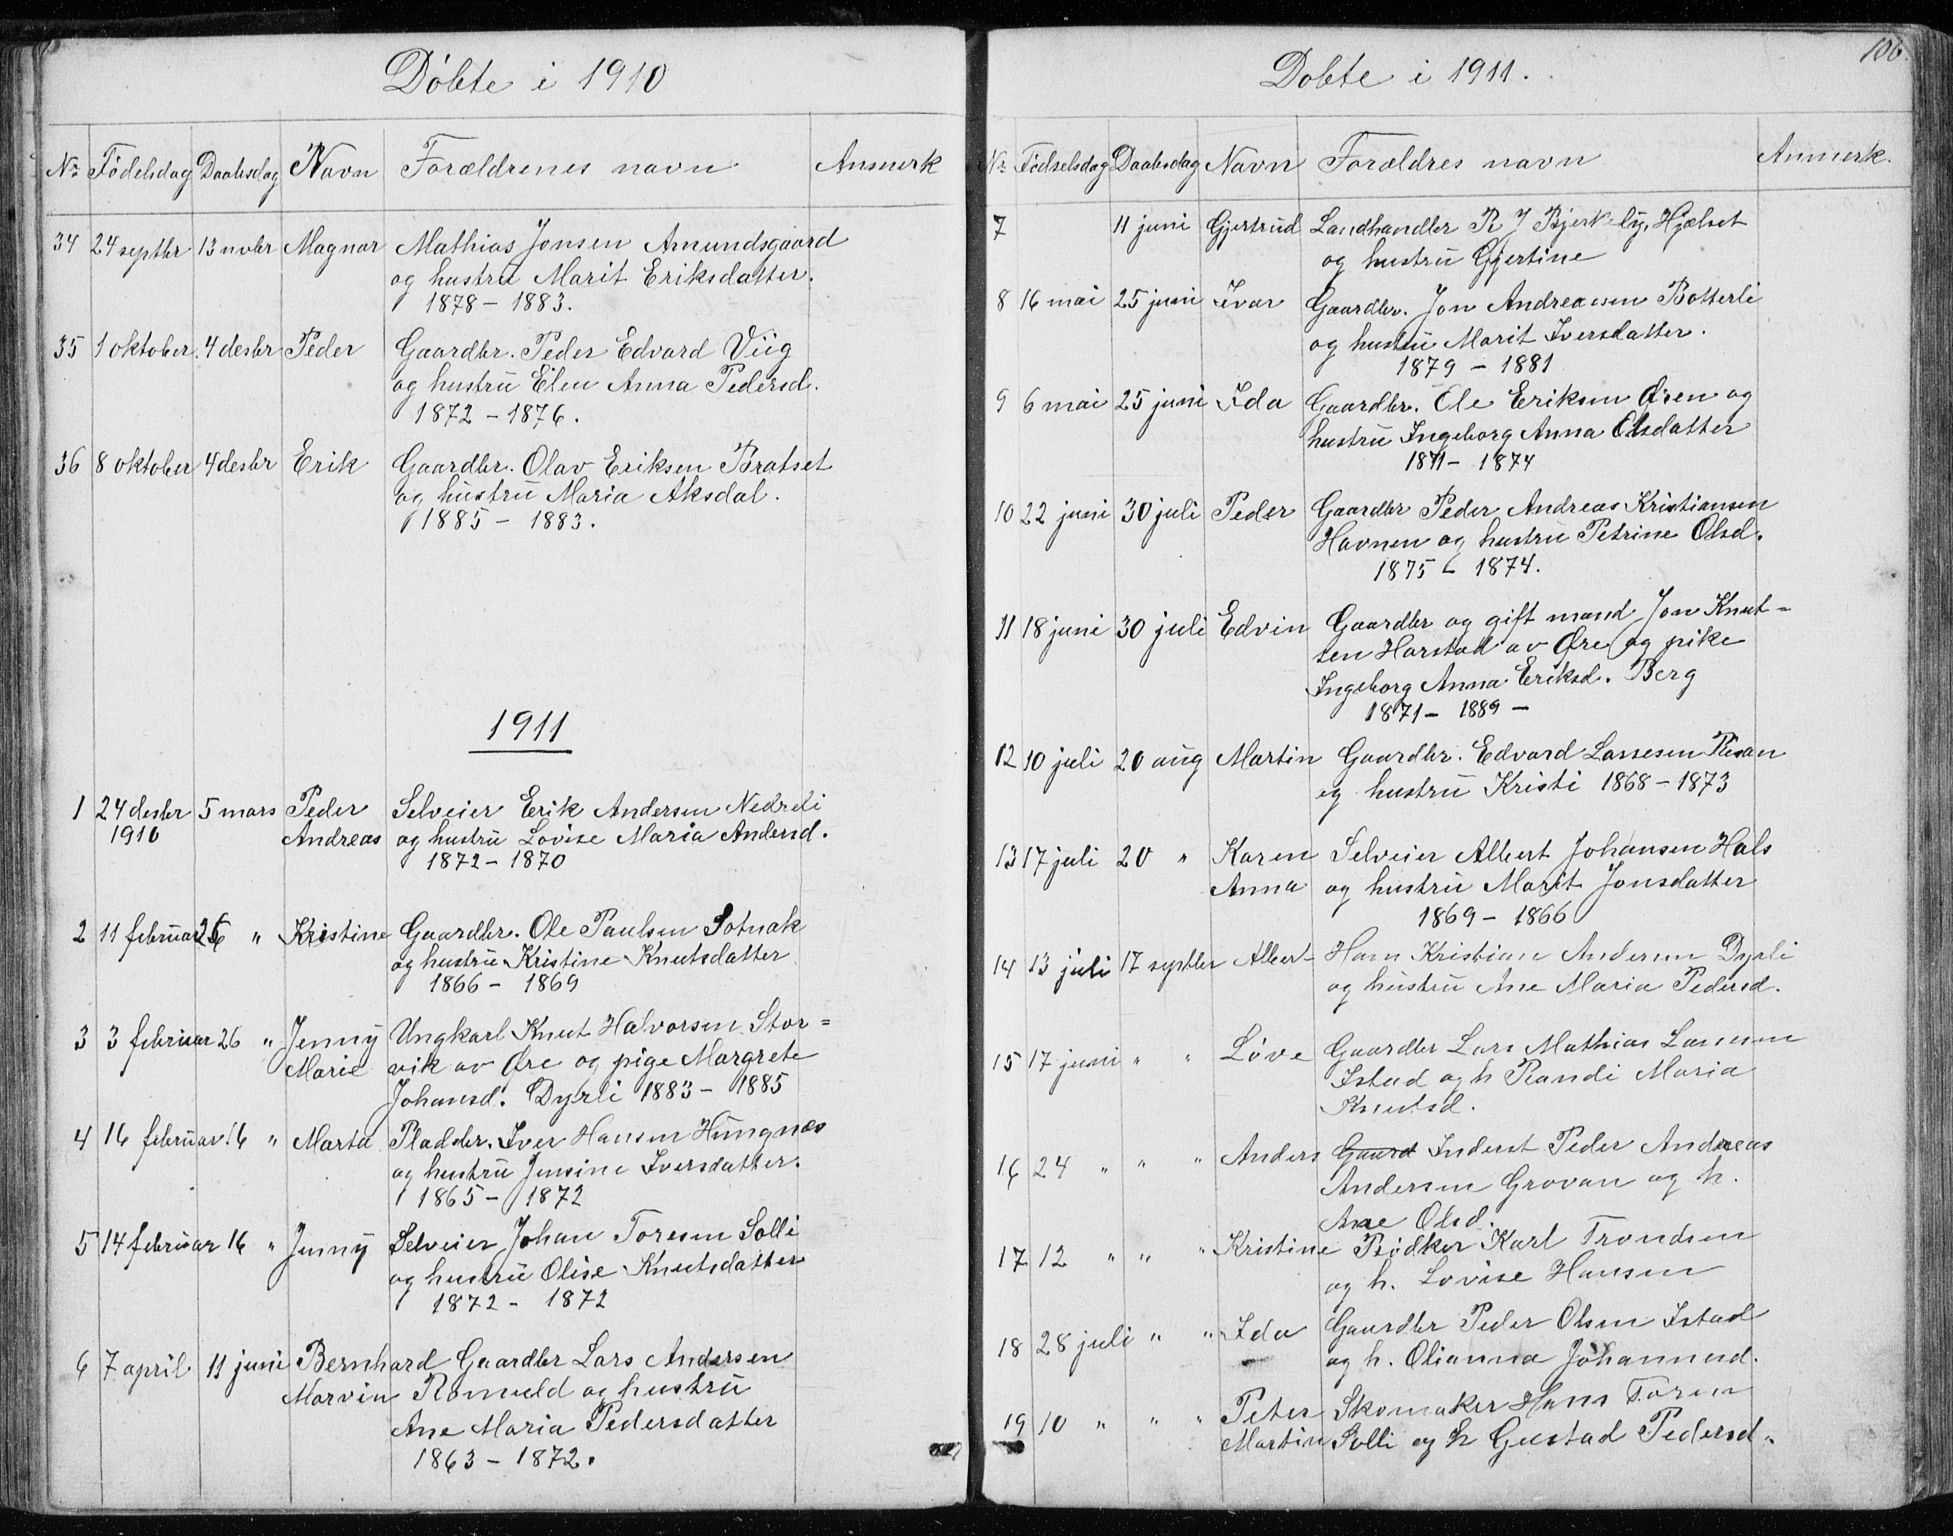 Døbte i 1910
Nr. Fødelsdag Daabsdag Navn Forældrenes navn Anmerk
34 24 septbr 13 nobr Magnar Mathias Jonsen Amundsgaard
og hustru Marit Eriksdatter.
1878 – 1883.
35 1 oktober. 4 desbr Peder Gaardbr. Peder Edvard Viig
og hustru Elen Anna Pedersd.
1872 – 1876.
36 8 oktober 4 desbr Erik Gaardbr. Olav Eriksen Bratset
og hustru Maria Aksdal.
1885 – 1883.
1911
1 24 desbr 5 mars Peder Selveier Erik Andersen Nedreli
1910 Andreas og hustru Lovise Maria Andersd.
1872 – 1870
2 11 februar 26 " Kristine Gaardbr. Ole Paulsen Sotnak
og hustru Kristine Knutsdatter
1866 – 1869
3 3 februar 26 " Jenny Ungkarl Knut Halvorsen Stor=
Marie vik av Øre og pige Margrete
Johansd. Dyrli 1883 – 1885
4 16 februar 16 " Marta Pladsbr. Iver Hansen Hungnes
og hustru Jensine Iversdatter.
1865 – 1872
5 14 februar 16 " Jenny Selveier Johan Toresen Solli
og hustru Olise Knutsdatter
1872 – 1872
6 7 april 11 juni Bernhard Gaardbr Lars Andersen
Marvin Romuld og hustru
Ane Maria Pedersdatter
1863 – 1872.
106.
Døbte i 1911.
Nr. Fødselsdag Daabsdag Navn Forældres navn Anmerk.
7 11 juni Gjertrud Landhandler R J Bjerkeby, Hjelset
og hustru Gjertine
8 16 mai 25 juni Ivar Gaardbr. Jon Andreassen Botterli
og hustru Marit Iversdatter.
1879 – 1881
9 6 mai 25 juni Ida Gaardbr. Ole Eriksen Øien og
hustru Ingeborg Anna Olsdatter
1871 – 1874
10 22 juni 30 juli Peder Gaardbr Peder Andreas Kristiansen
Havnen og hustru Petrine Olsd.
1875 – 1874.
11 18 juni 30 juli Edvin Gaardbr og gift mand Jon Knut=
sen Harstad av Øre og pike
Ingeborg Anna Eriksd. Berg
1871 – 1889 –
12 10 juli 20 aug Martin Gaardbr. Edvard Lassesen Risan
og hustru Kristi 1868 – 1873
13 17 juli 20 " Karen Selveier Albert Johansen Hals
Anna og hustru Marit Jonsdatter
1869 – 1866
14 13 juli 17 septbr Albert Hans Kristian Andersen Dyrli
og hustru Ane Maria Pedersd.
15 17 juni " " Løve Gaardbr Lars Mathias Larsen
Istad og h Randi Maria
Knutsd.
16 24 " " " Anders Gaard Inderst Peder Andreas
Andersen Grovan og h.
Ane Olsd.
17 12 " " " Kristine Bødker Karl Trondsen
og h. Lovise Hansen
18 28 juli " " Ida Gaardbr Peder Olsen Istad
og h. Olianna Johannesd.
19 10 " " " Peter Skomaker Hans Toresen
Martin Solli og h Gustad Pedersd.